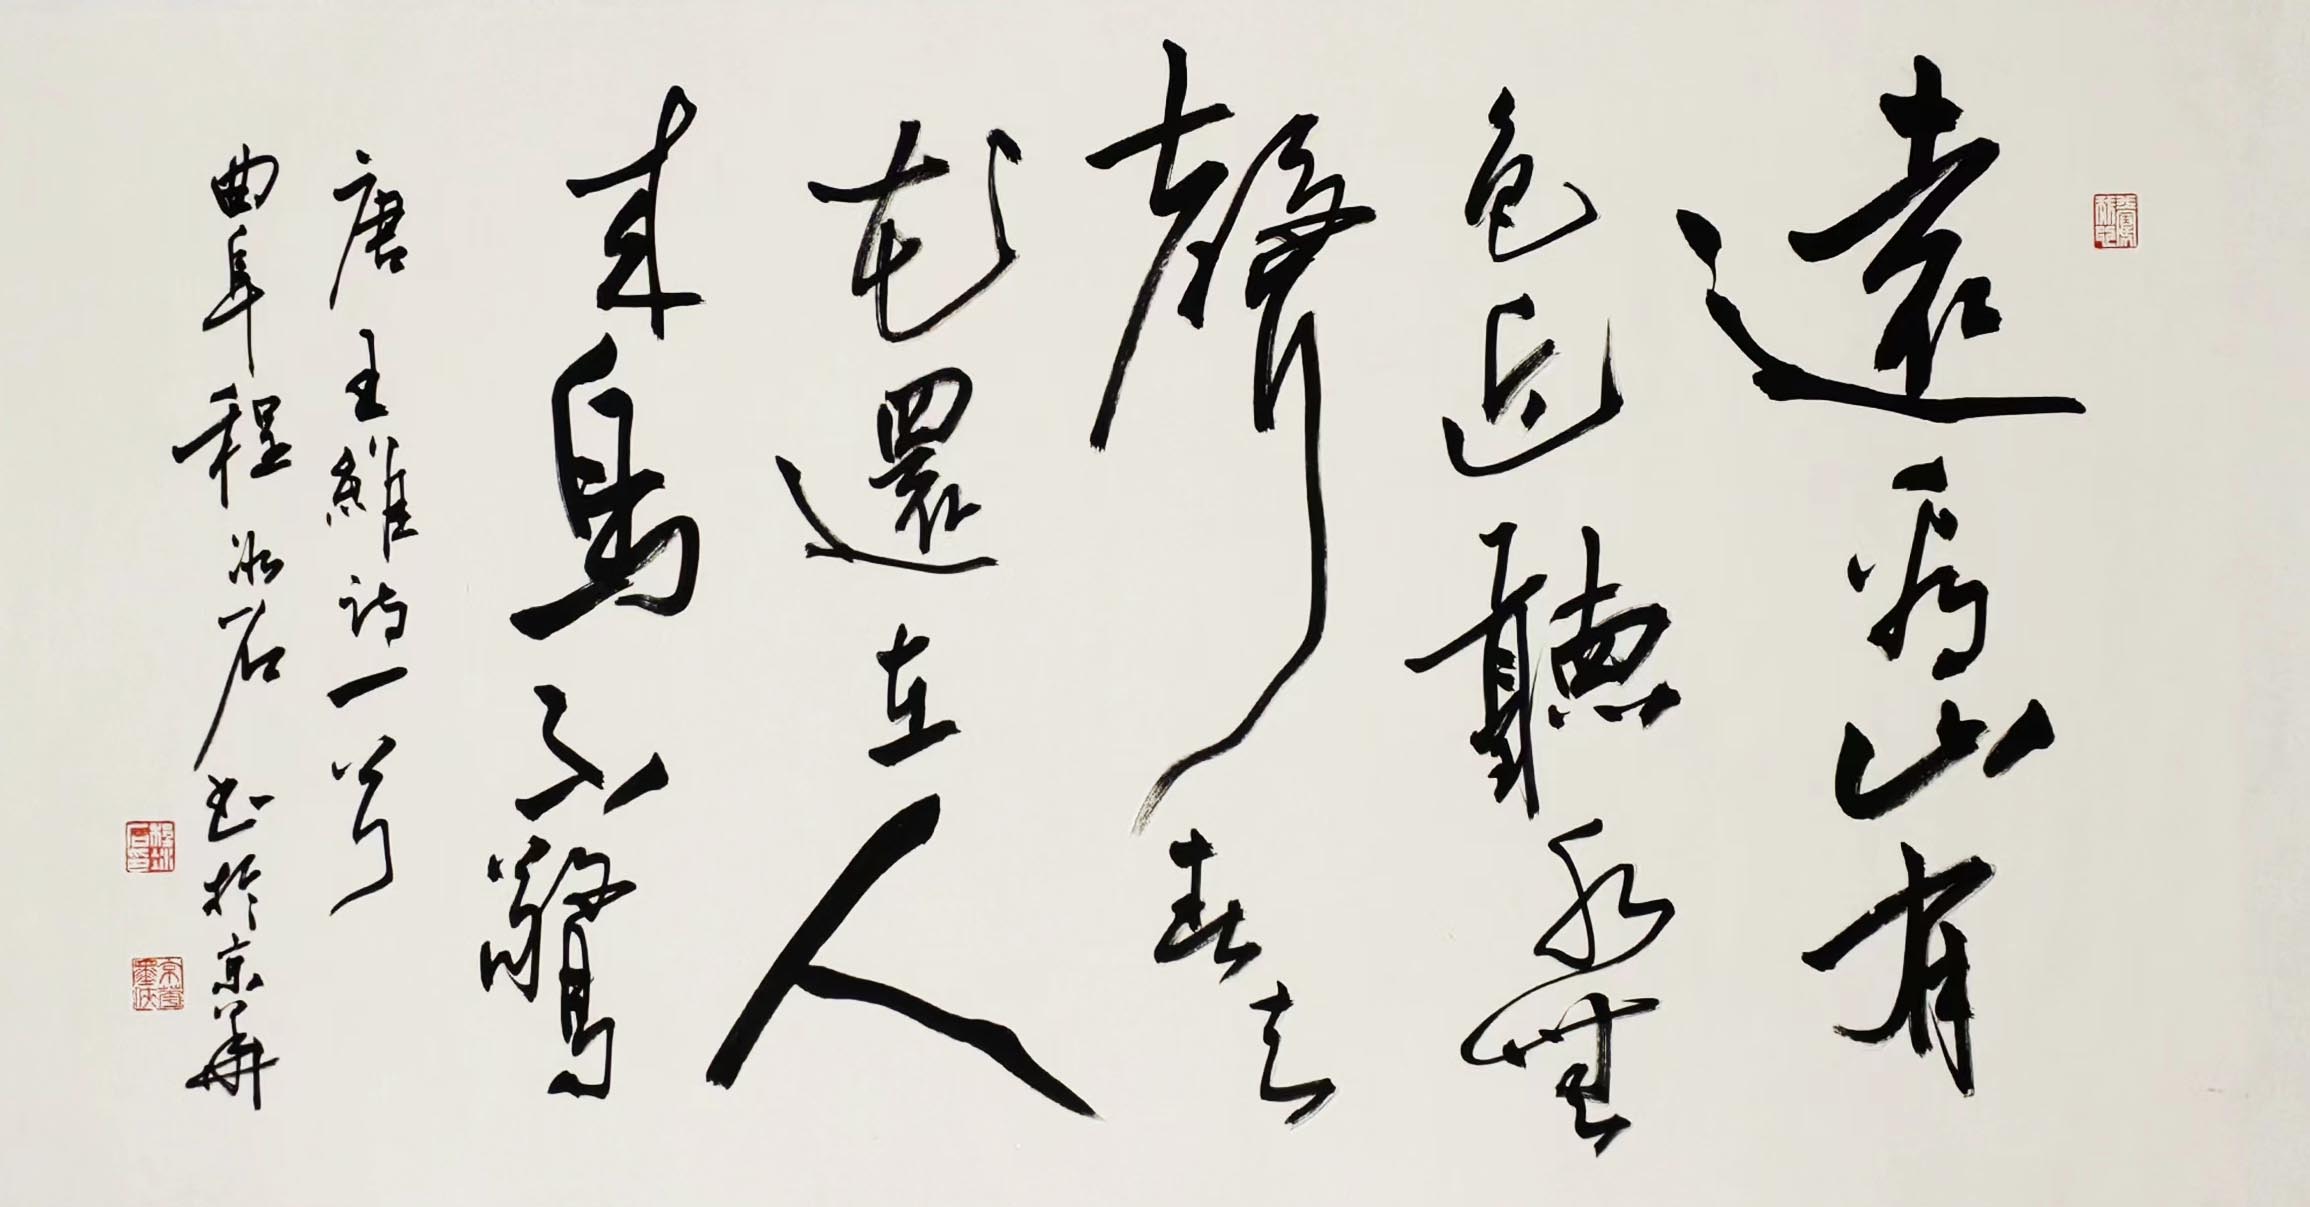 遠看山有
色近聽水無
聲春去
花還在人
來鳥不驚
唐王維詩一首
曲阜程冰石書於京華
程冰石印